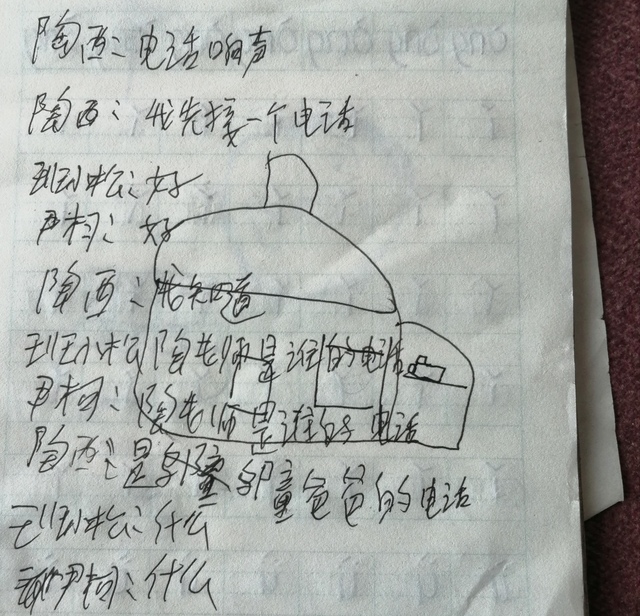 陶西：电话响声
陶西：我先接一个电话
班小松：好
尹柯：好
陶西：我知道
班小松 陶老师是谁的电话
尹柯：陶老师是谁的电话
陶西：是邬童邬童爸爸的电话
班小松：什么
尹柯：什么